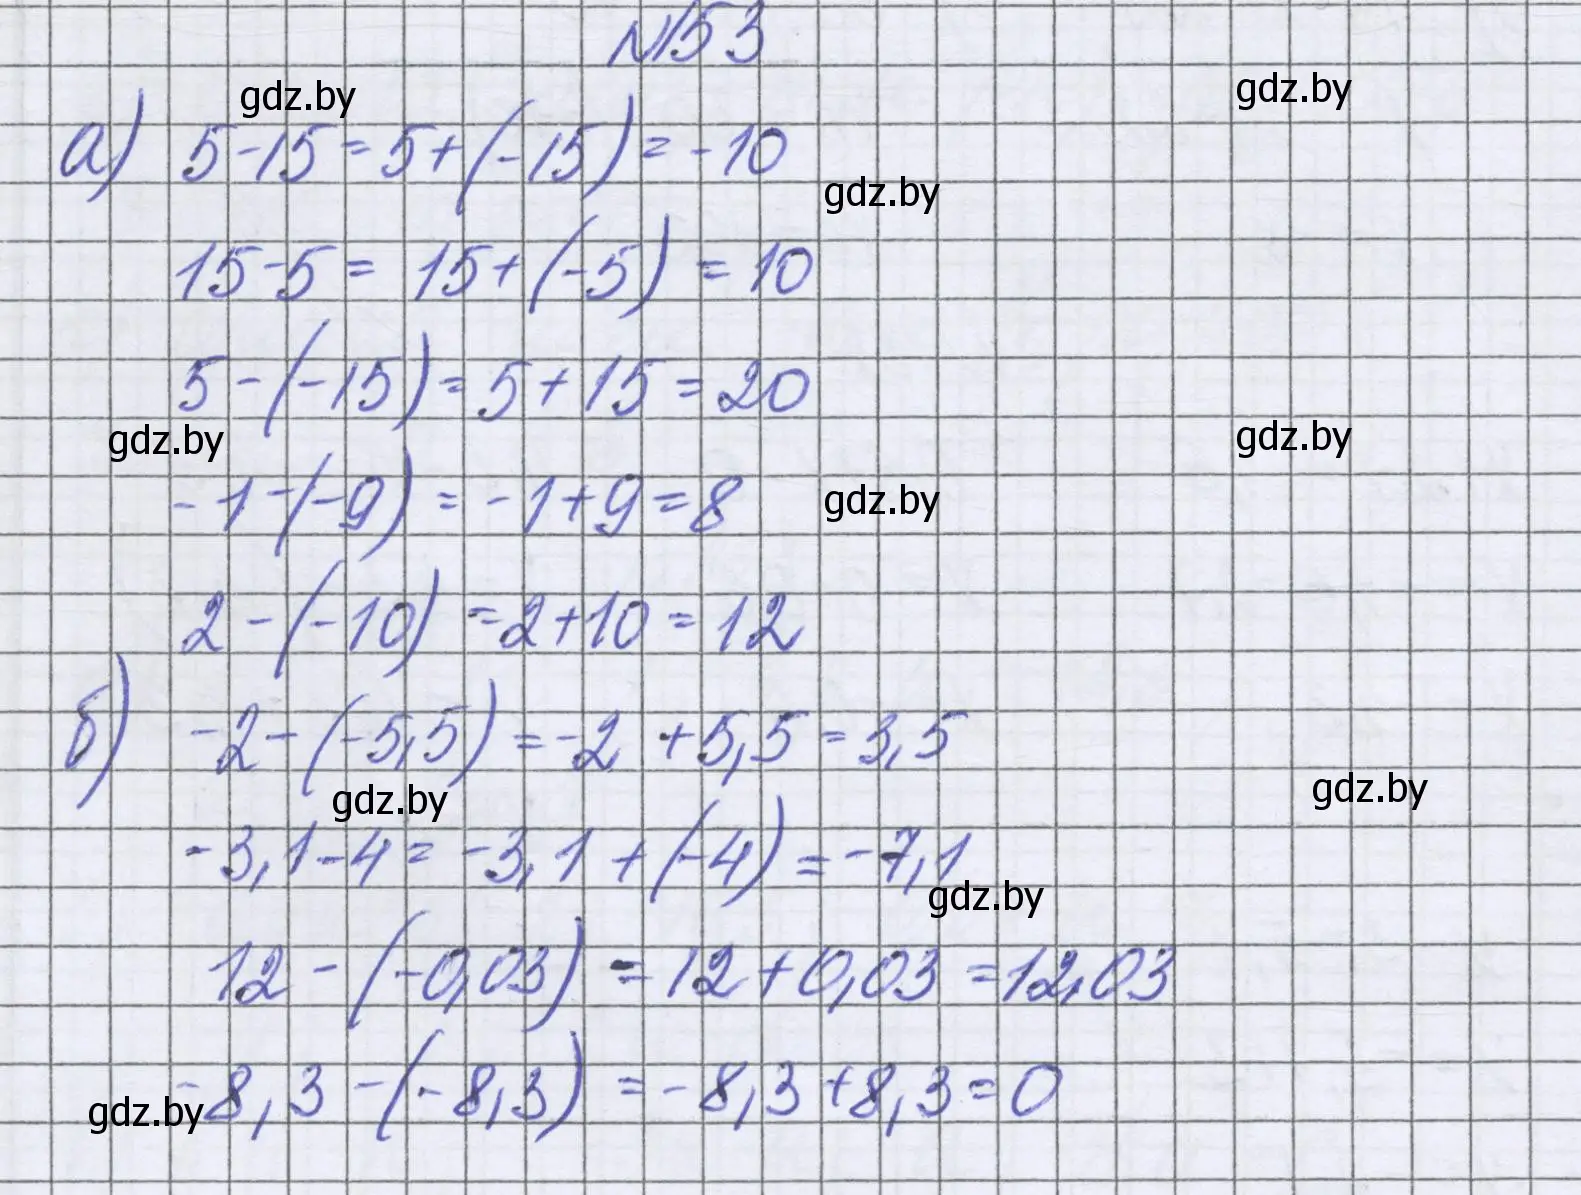 №153
gdz.by
gdz.by
а) 5-15=5+(-15)=-10
gdz.by
15-5= 15+(-5)=10
5-(-15)=5+15=20
gdz.by
gdz.by
-1-(-9)=-1+9=8
gdz.by
2-(-10)=2+10=12
б) -2-(-5,5)=-2+5,5=3,5
gdz.by
gdz.by
-3,1-4=-3,1+(-4)=-7,1
gdz.by
12-(-0,03)=12+0,03=12,03
-8,3-(-8,3)=-8,3+8,3=0
gdz.by